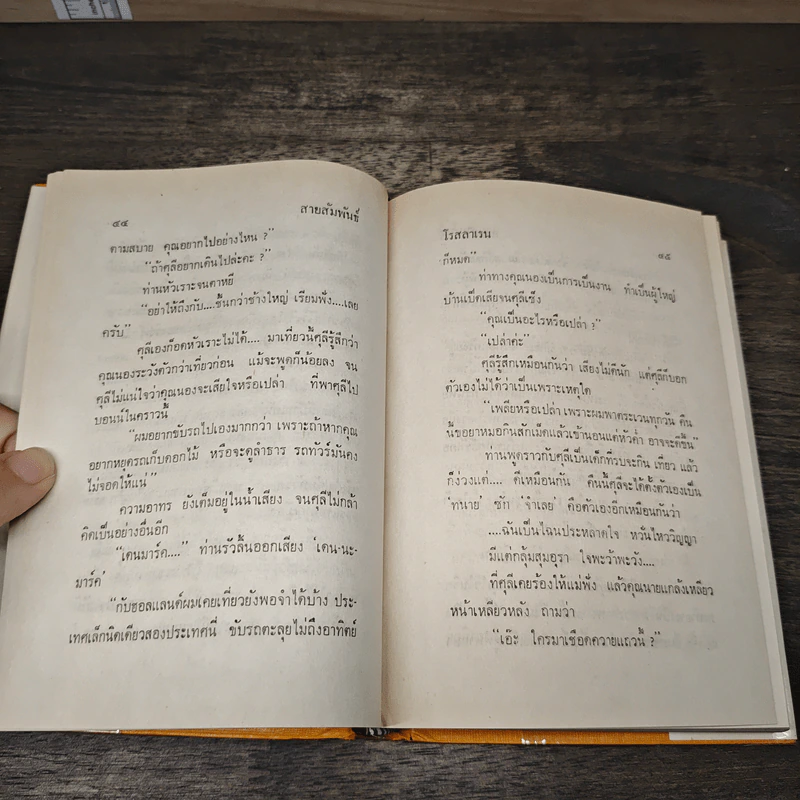 ๙๔ สายสัมพันธ์
ตามสบาย คุณอยากไปอย่างไหน ?"
"ถ้าศุลีอยากเดินไปล่ะคะ ?"
ท่านหัวเราะจนตาหยี
"อย่าให้ถึงกับ....ขึ้นกว่าช้างใหญ่ เรียมพั่ง....เลย
ครับ"
ศุลีเองก็อดหัวเราะไม่ได้.... มาเที่ยวนี้ศุลีรู้สึกว่า
คุณนองระวังตัวกว่าเที่ยวก่อน แม้จะพูดก็น้อยลง จน
ศุลีไม่แน่ใจว่าคุณนองจะเสียใจหรือเปล่า ที่พาศุลีไป
บอนน์ในคราวนี้
"ผมอยากขับรถไปเองมากกว่า เพราะถ้าหากคุณ
อยากหยุดรถเก็บดอกไม้ หรือจะดูลำธาร รถทัวร์มันคง
ไม่จอดให้แน่"
ความอาทร ยังเต็มอยู่ในน้ำเสียง จนศุลีไม่กล้า
คิดเป็นอย่างอื่นอีก
"เดนมาร์ค...." ท่านรัวลิ้นออกเสียง 'เดน-นะ-
มาร์ค'
"กับฮอลแลนด์ผมเคยเที่ยวยังพอจำได้บ้าง ประ-
เทศเล็กนิดเดียวสองประเทศนี่ ขับรถตะลุยไม่ถึงอาทิตย์
โรสลาเรน ๙๕
ก็หมด"
ท่าทางคุณนองเป็นการเป็นงาน ทำเป็นผู้ใหญ่
บ้านเบ็ดเสียจนศุลีเซ็ง
"คุณเป็นอะไรหรือเปล่า ?"
"เปล่าค่ะ"
ศุลีรู้สึกเหมือนกันว่า เสียงไม่ดีนัก แต่ศุลีก็บอก
ตัวเองไม่ได้ว่าเป็นเพราะเหตุใด
"เพลียหรือเปล่า เพราะผมพาตระเวนทุกวัน คืน
นี้ขอยาหมอกินสักเม็ดแล้วเข้านอนแต่หัวค่ำ อาจจะดีขึ้น"
ท่านพูดราวกับศุลีเป็นเด็กที่รบจะกิน เที่ยว แล้ว
ก็ง่วงแต่.... ดีเหมือนกัน คืนนี้ศุลีจะได้ตั้งตัวเองเป็น
'ทนาย' ซัก 'จำเลย' คือตัวเองอีกเหมือนกันว่า
....ฉันเป็นไฉนประหลาดใจ หวั่นไหววิญญา
มีแต่กลุ้มสุมอุรา ใจพะว้าพะวัง....
ที่ศุลีเคยร้องให้แม่ฟัง แล้วคุณนายแกล้งเหลียว
หน้าเหลียวหลัง ถามว่า
"เอ๊ะ ใครมาเชือดควายแถวนี้ ?"